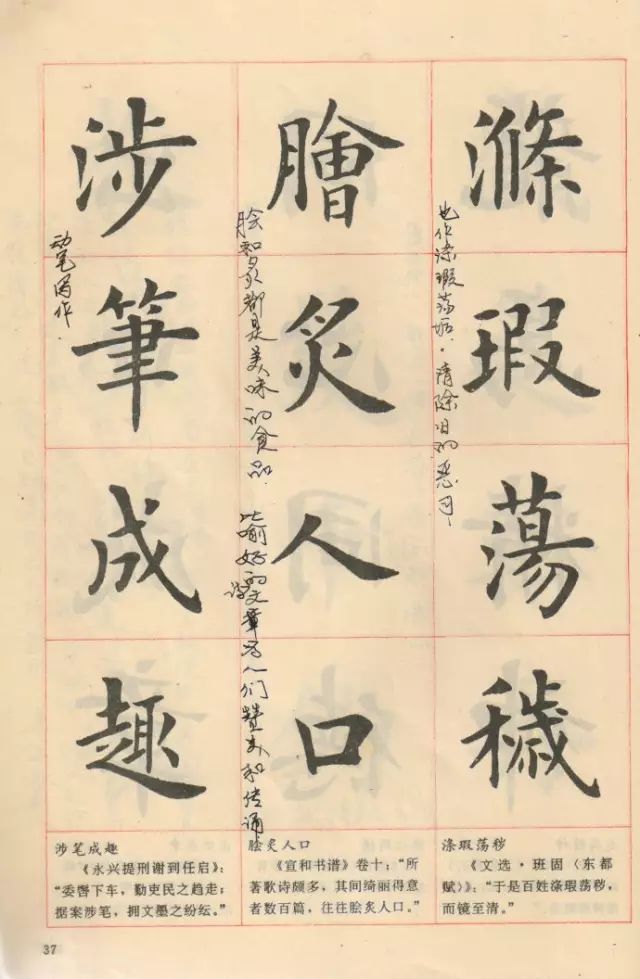 滌瑕蕩穢
也作涤瑕荡垢.清除旧的恶习
膾炙人口
脍和炙都是美味的食品.
比喻好的诗文章为人们赞美和传诵
涉筆成趣
动笔写作.
涤瑕荡秽
《文选·班固〈东都
赋〉》:“于是百姓涤瑕荡秽,
而镜至清。”
脍炙人口
《宣和书谱》卷十:“所
著歌诗颇多,其间绮丽得意
者数百篇,往往脍炙人口。”
涉笔成趣
《永兴提刑谢到任启》:
“委辔下车,勤吏民之趋走;
据案涉笔,拥文墨之纷纭。”
37